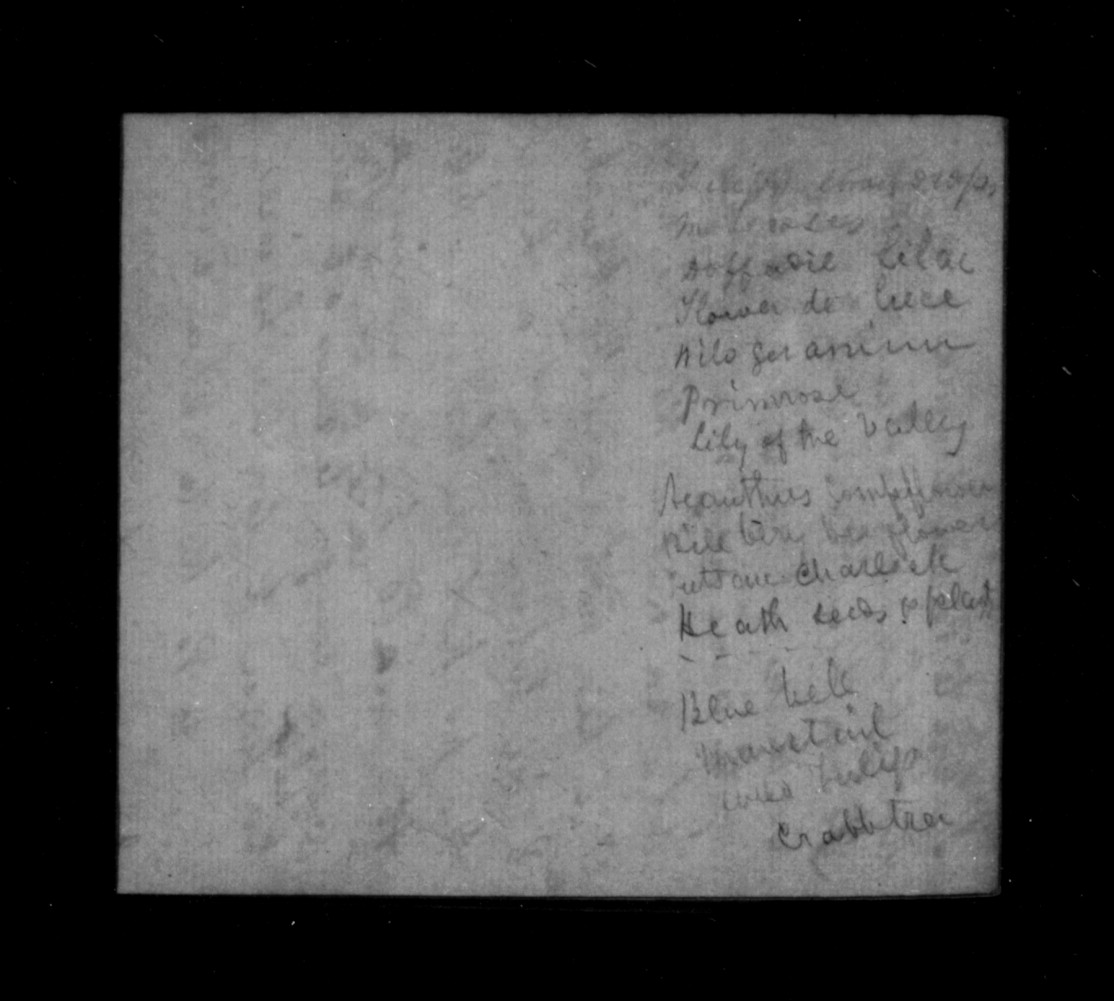 drops,
roses
Daffodil Lilac
Flower de luce
Wild geranium
Primrose
Lily of the Valley
Acanthus
flower
Charlock
Heath seeds & plants
Blue bell
Mousetail
wild tulip
Crabbtree